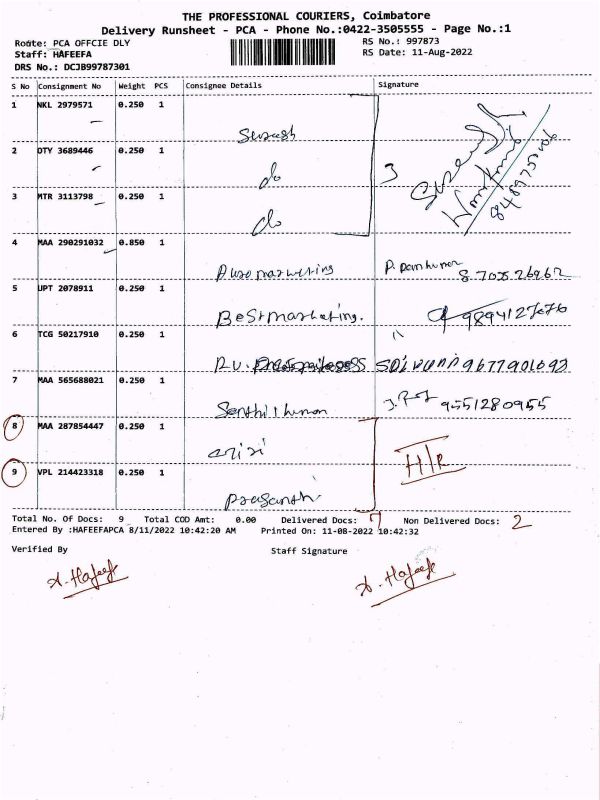 THE PROFESSIONAL COURIERS, Coimbatore
Delivery Runsheet - PCA - Phone No.:0422-3505555 - Page No.:1
Route: PCA OFFCIE DLY
RS No.: 997873
Staff: HAFEEFA
RS Date: 11-Aug-2022
DRS No.: DCJB99787301
S No Consignment No Weight PCS Consignee Details Signature
1 NKL 2979571 0.250 1
Suresh
2 OTY 3689446 0.250 1
do
3
3 MTR 3113798 0.250 1
do
4 MAA 290291032 0.850 1
5 UPT 2078911 0.250 1
Bestmarketing. 9894127676
6 TCG 50217910 0.250 1
R.V. 9677901693
7 MAA 565688021 0.250 1
9551280955
8 MAA 287854447 0.250 1
H/R
9 VPL 214423318 0.250 1
Prasanth
Total No. Of Docs: 9 Total COD Amt: 0.00 Delivered Docs: 7 Non Delivered Docs: 2
Entered By :HAFEEFAPCA 8/11/2022 10:42:20 AM Printed On: 11-08-2022 10:42:32
Verified By Staff Signature
A. Hafeefa A. Hafeefa